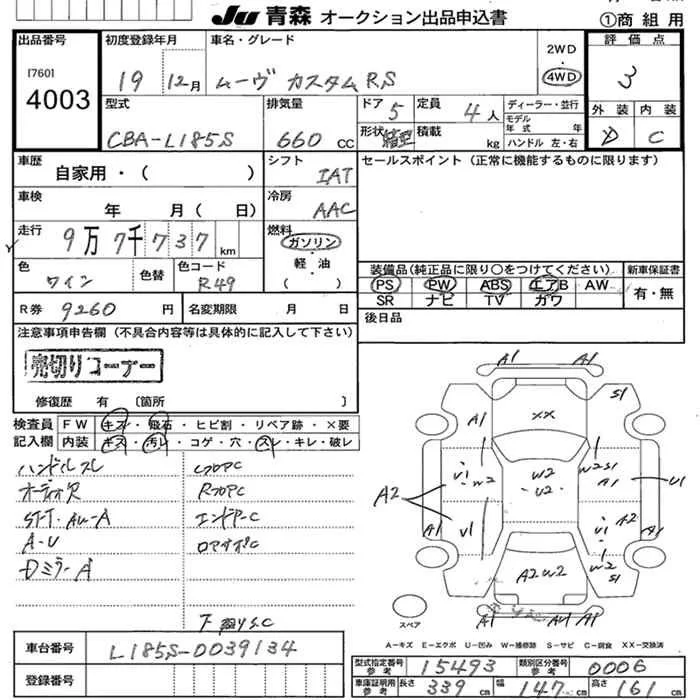 JU 青森 オークション出品申込書
①商組用
出品番号
[760]
4003
初度登録年月
19 12月
車名・グレード
ムーヴ カスタム RS
2WD
・
4WD
評価点
3
外装 内装
D C
型式
CBA-L185S
排気量
660 CC
ドア 5
定員 4人
形状 箱型
積載 kg
ディーラー・並行
モデル年式 年
ハンドル 左・右
車歴
自家用・( )
シフト
IAT
セールスポイント(正常に機能するものに限ります)
車検
年 月( 日)
冷房
AAC
走行
9万7千737 km
燃料
ガソリン
・
軽油
( )
色
ワイン
色替
色コード
R49
装備品(純正品に限り○をつけてください)
PS PW ABS エアB AW
SR ナビ TV ガワ
新車保証書
有・無
R券 9260 円
名変期限 月 日
後日品
注意事項申告欄(不具合内容等は具体的に記入して下さい)
売切りコーナー
修復歴 有 〔箇所 〕
検査員記入欄
FW キズ・飛石・ヒビ割・リペア跡・×要
内装 キズ・汚レ・コゲ・穴・スレ・キレ・破レ
ハンドルスレ
オーディオ欠
ST-T. AW-A
A-U
Dミラー A
LフロアC
RフロアC
エンドアーC
下廻りS.C
A1 A1
A1 XX S1
V1 W2 W2 U2 W2 S1 A1 U1
A2
A1 V1 V1 A2 A1
A2W2 W2 S1
A1 AW A1
スペア
A-キズ E-エクボ U-凹み W-補修跡 S-サビ C-腐食 XX-交換済
車台番号
L185S-0039134
登録番号
型式指定番号 参考 15493
類別区分番号 参考 0006
車庫証明用 参考 長さ 339 cm 幅 147 cm 高さ 161 cm